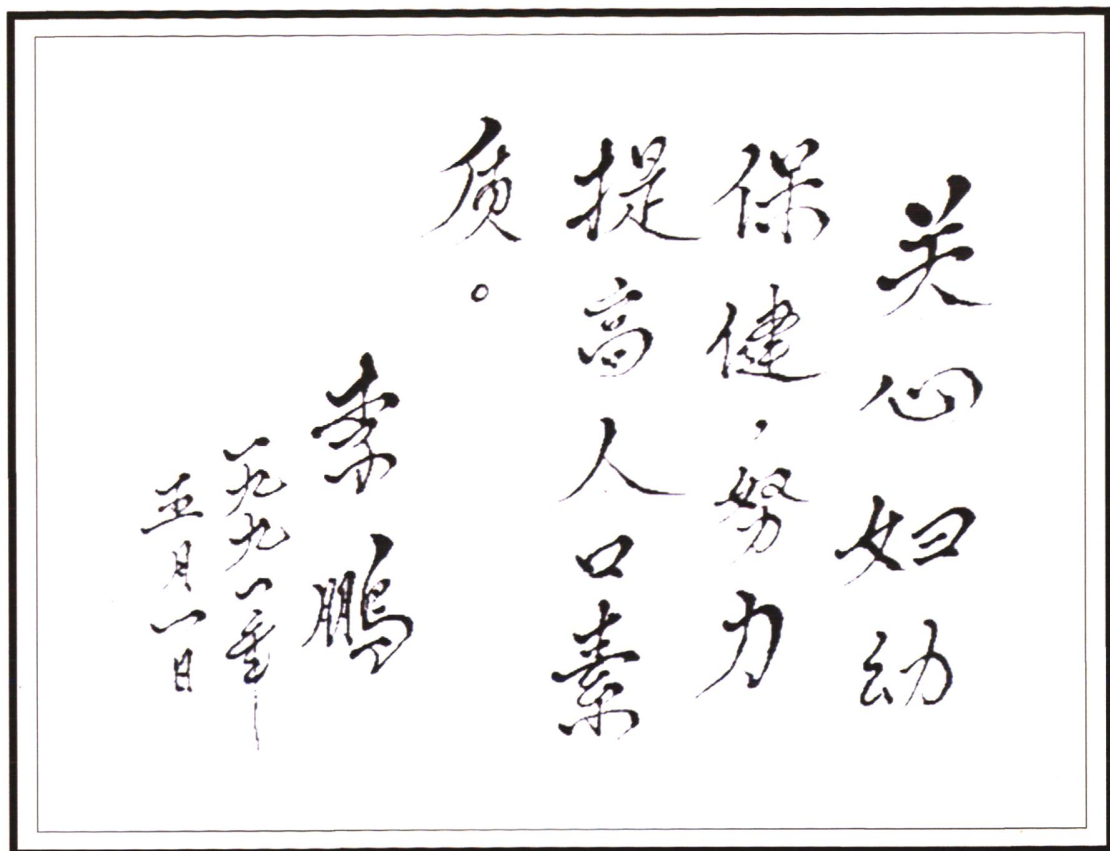 关心妇幼
保健,努力
提高人口素
质。
李鹏
一九九一年
五月一日